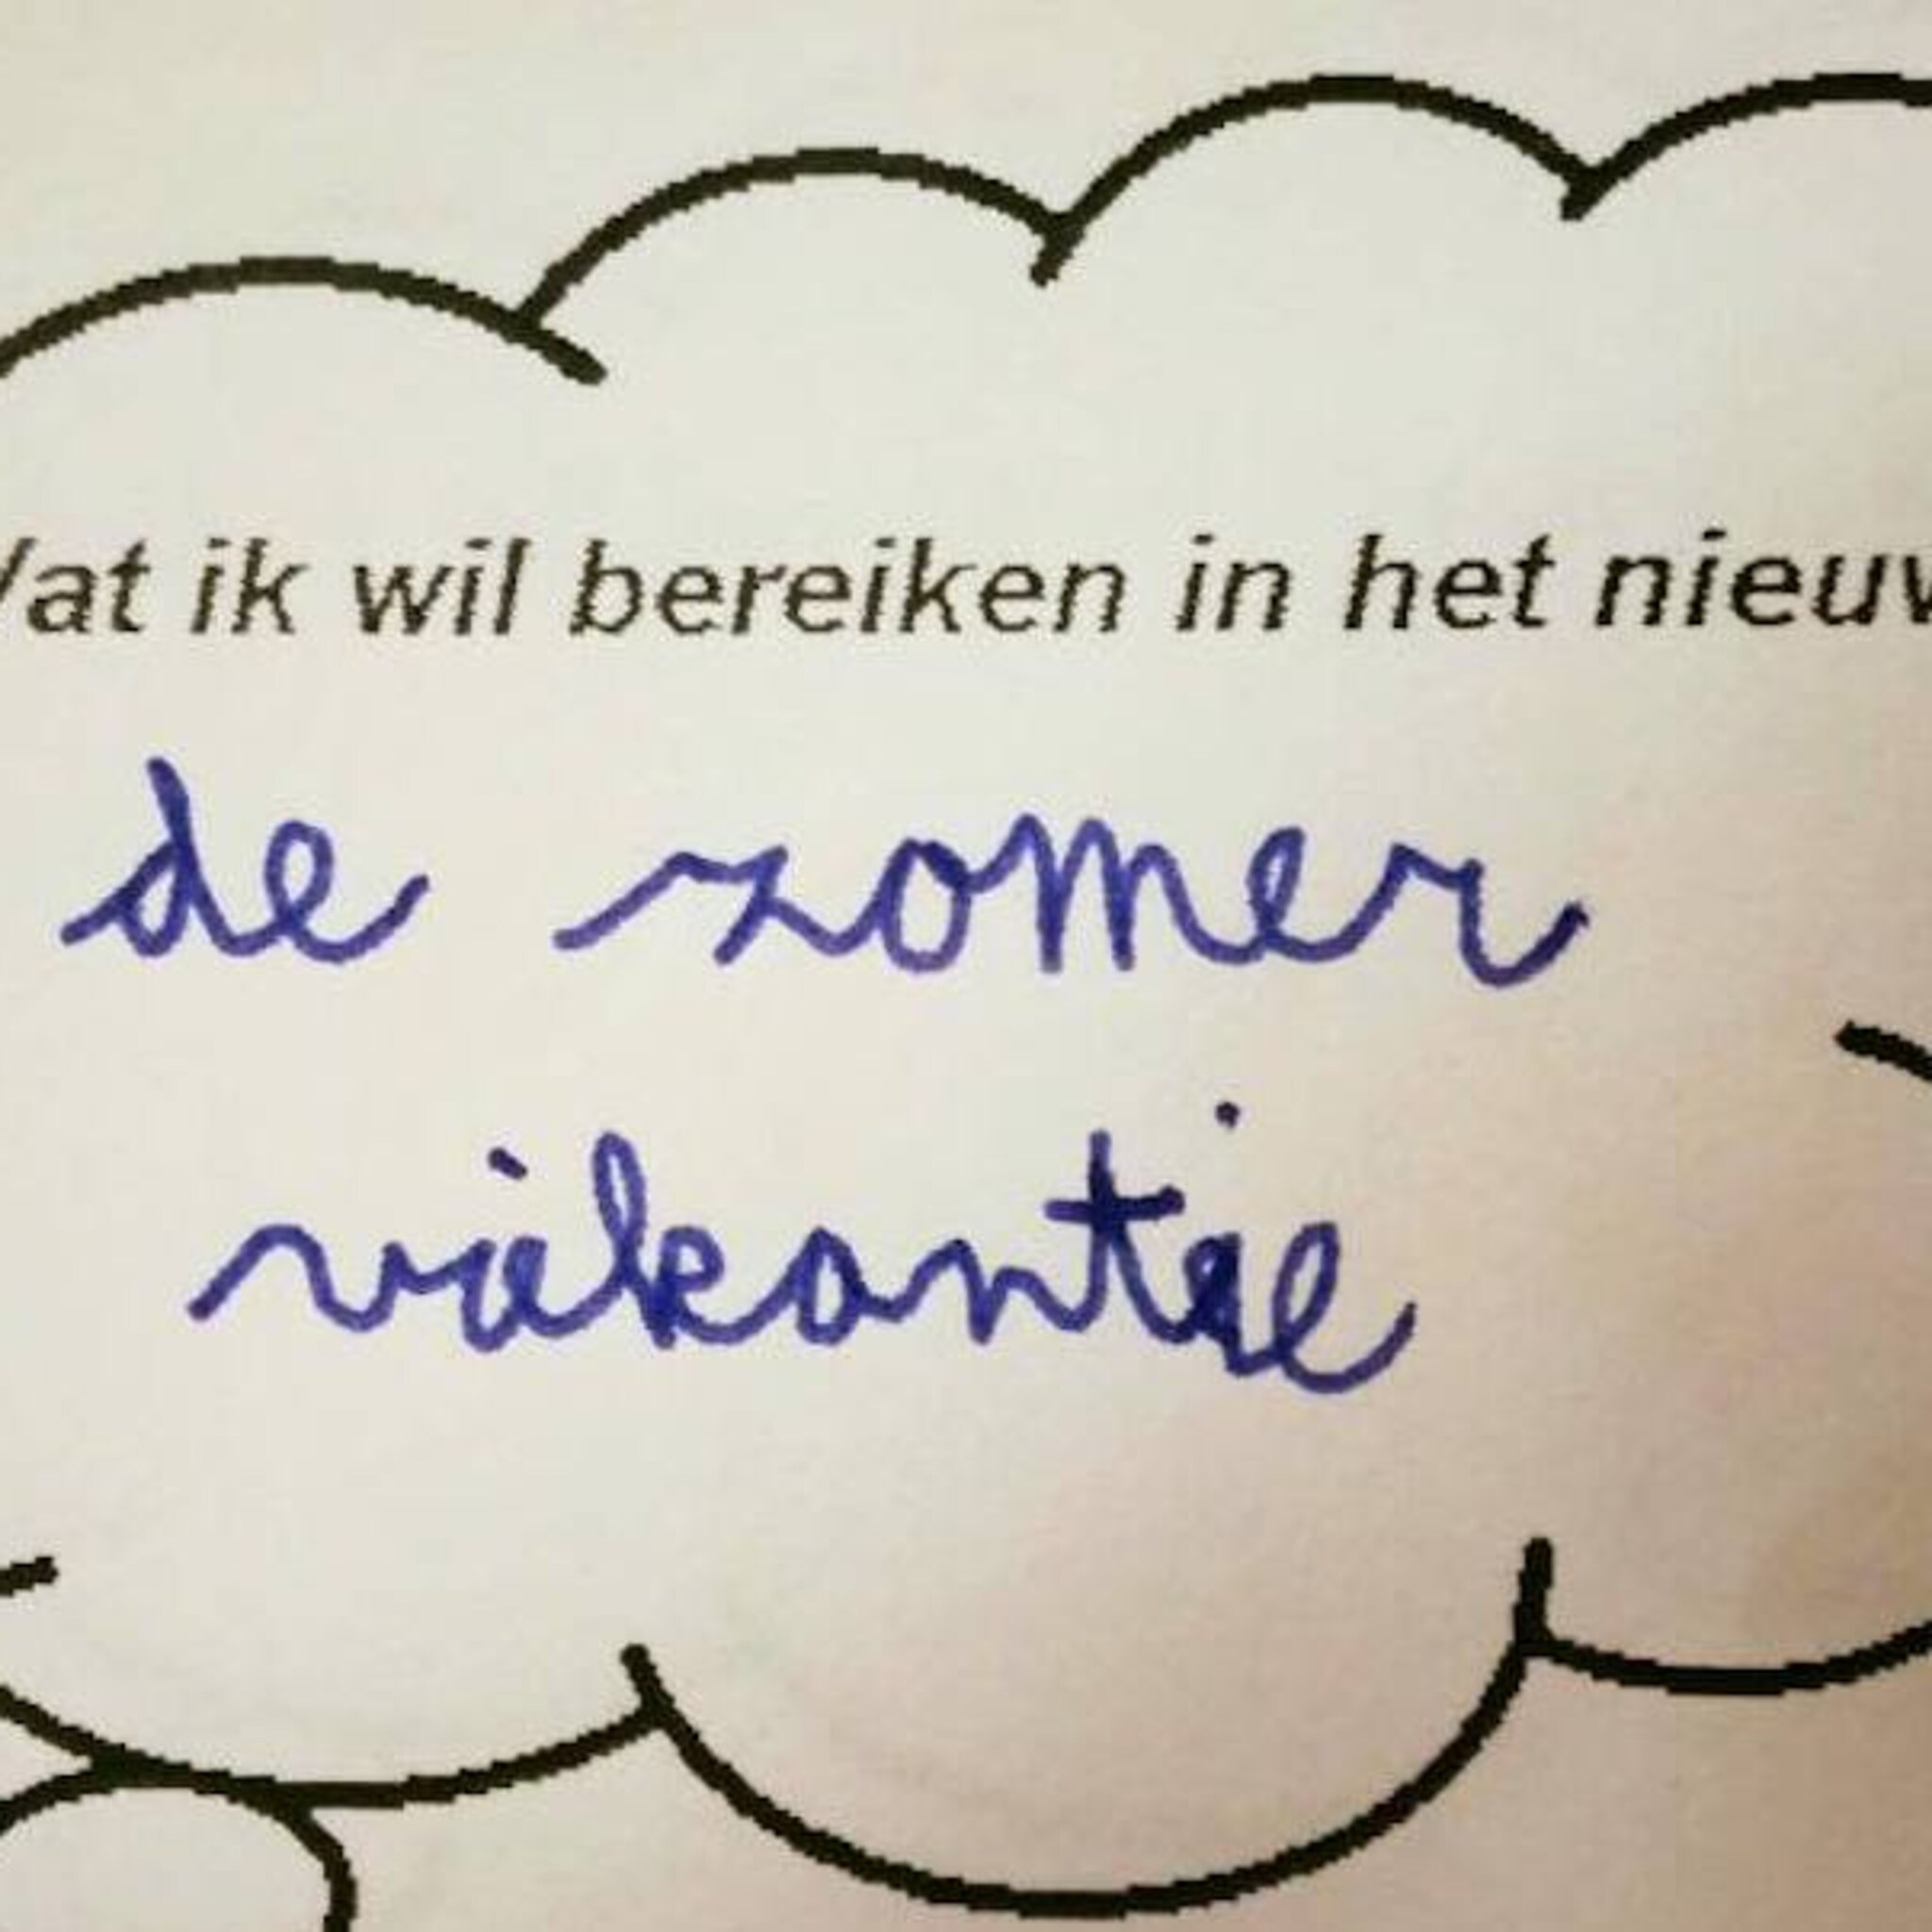 Wat ik wil bereiken in het nieuw
de zomer
vakantie